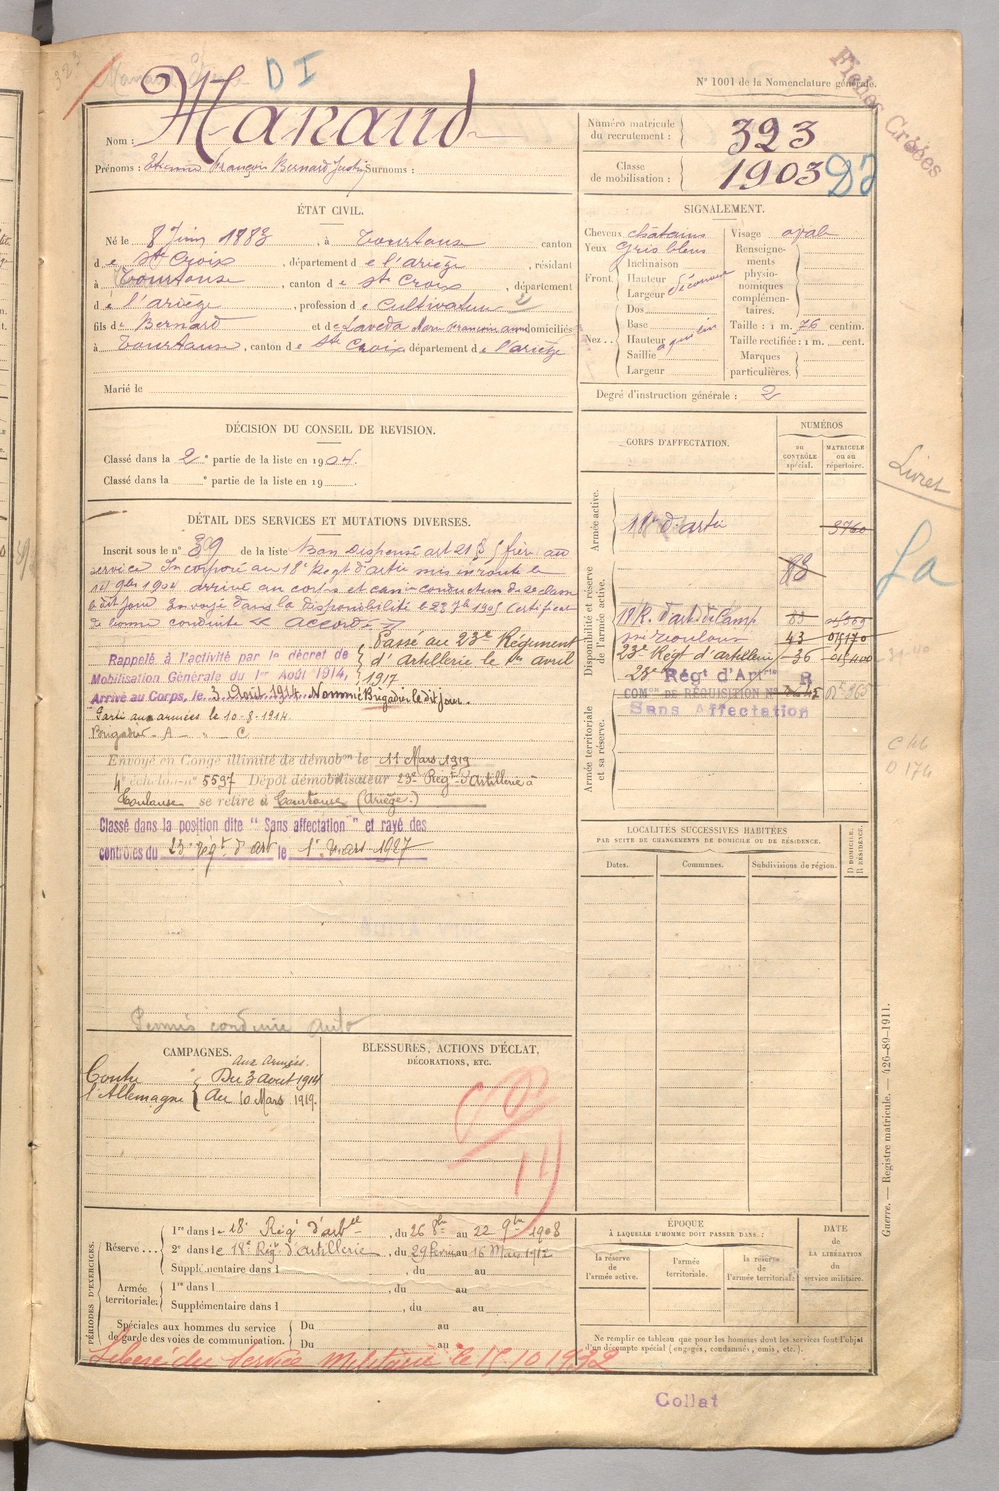 D I
N° 1001 de la Nomenclature générale.
Fiches Créées
Nom : Manaud
Prénoms : Etienne François Bernard Justin Surnoms :
Numéro matricule du recrutement : 323
Classe de mobilisation : 1903
ÉTAT CIVIL.
Né le 8 Juin 1883, à Tourtouse canton
d e Ste Croix, département d e l'ariège, résidant
à Tourtouse, canton d e Ste Croix, département
d e l'ariège, profession d e Cultivateur
fils d e Bernard et d e Laveda Marie domiciliés
à Tourtouse, canton d e Ste Croix département d e l'ariège
Marié le
SIGNALEMENT.
Cheveux châtains
Yeux gris bleus
Front. Inclinaison
Hauteur
Largeur découvert
Nez. Dos
Base
Hauteur
Saillie
Largeur
Visage ovale
Renseignements physionomiques complémentaires.
Taille : 1 m. 76 centim.
Taille rectifiée : 1 m. cent.
Marques particulières.
Degré d'instruction générale : 2
DÉCISION DU CONSEIL DE REVISION.
Classé dans la 2e partie de la liste en 1904.
Classé dans la e partie de la liste en 19
DÉTAIL DES SERVICES ET MUTATIONS DIVERSES.
Inscrit sous le n° 39 de la liste Bon Dispensé art 21 § frère au
service Incorporé au 18e Regt d'artie mis en route le
9bre 1904 arrivé au corps et canonnier conducteur de 2e classe
le dit jour Envoyé dans la disponibilité le 23 7bre 1905 Certificat
de bonne conduite « Accordé »
Rappelé à l'activité par le décret de
Mobilisation Générale du 1er Août 1914,
Arrivé au Corps, le 3 Août 1914 Nommé Brigadier le dit jour.
Passé au 23e Régiment
d'Artillerie le 1er avril
1917
Parti aux armées le 10-8-1914.
Brigadier - A - " - C
Envoyé en Congé illimité de démobon le 11 Mars 1919
4e échelon n° 5597 Dépôt démobilisateur 23e Régt d'Artillerie à
Toulouse se retire à Tourtouse (Ariège.)
Classé dans la position dite "Sans affectation" et rayé des
contrôles du 23e régt d'art le 1er Mars 1927
Permis conduire Auto
CORPS D'AFFECTATION.
NUMÉROS
au CONTRÔLE spécial.
MATRICULE ou au répertoire.
Armée active.
18e d'artie
3760
83
Disponibilité et réserve de l'armée active.
18e R. d'art de Camp
83
43
23e Régt d'artillerie
36
23e Régt d'Artie R
COMon DE RÉQUISITION N°
Sans Affectation
Armée territoriale et sa réserve.
Livret
La
LOCALITÉS SUCCESSIVES HABITÉES
PAR SUITE DE CHANGEMENTS DE DOMICILE OU DE RÉSIDENCE.
Dates.
Communes.
Subdivisions de région.
D DOMICILE.
R RÉSIDENCE.
CAMPAGNES.
Contre l'Allemagne
Aux Armées.
Du 3 aout 1914
Au 10 Mars 1919.
BLESSURES, ACTIONS D'ÉCLAT,
DÉCORATIONS, ETC.
PÉRIODES D'EXERCICES.
Réserve...
1re dans le 18e Régt d'artie, du 26 8bre au 22 9bre 1908
2e dans le 18e Régt d'artillerie, du 29 février au 16 Mars 1912
Supplémentaire dans l , du au
Armée territoriale.
1re dans l , du au
Supplémentaire dans l , du au
Spéciales aux hommes du service de garde des voies de communication.
Du au
Du au
ÉPOQUE
À LAQUELLE L'HOMME DOIT PASSER DANS :
la réserve de l'armée active.
l'armée territoriale.
la réserve de l'armée territoriale
DATE de LA LIBÉRATION du service militaire.
Ne remplir ce tableau que pour les hommes dont les services font l'objet
d'un décompte spécial (engagés, condamnés, omis, etc.).
Libéré du Service Militaire le 15.10.1932
Guerre. — Registre matricule. — 426-89-1911.
Collat